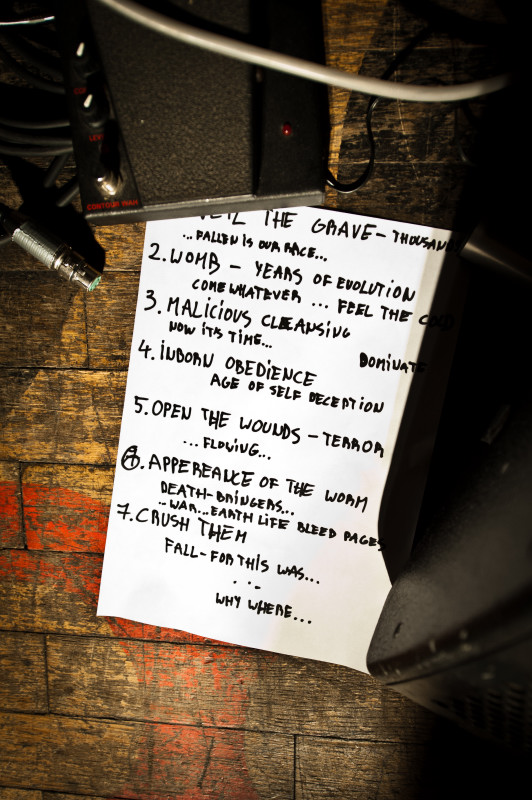 CONTOUR WAH
VEIL THE GRAVE - THOUSANDS
... FALLEN IS OUR RACE...
2. WOMB - YEARS OF EVOLUTION
COME WHATEVER ... FEEL THE COLD
3. MALICIOUS CLEANSING
NOW ITS TIME...
DOMINATE
4. INBORN OBEDIENCE
AGE OF SELF DECEPTION
5. OPEN THE WOUNDS - TERROR
... FLOWING...
6. APPEREANCE OF THE WORM
DEATH-BRINGERS...
.. WAR... EARTH LIFE BLEED RAGES
7. CRUSH THEM
FALL - FOR THIS WAS...
...
WHY WHERE...